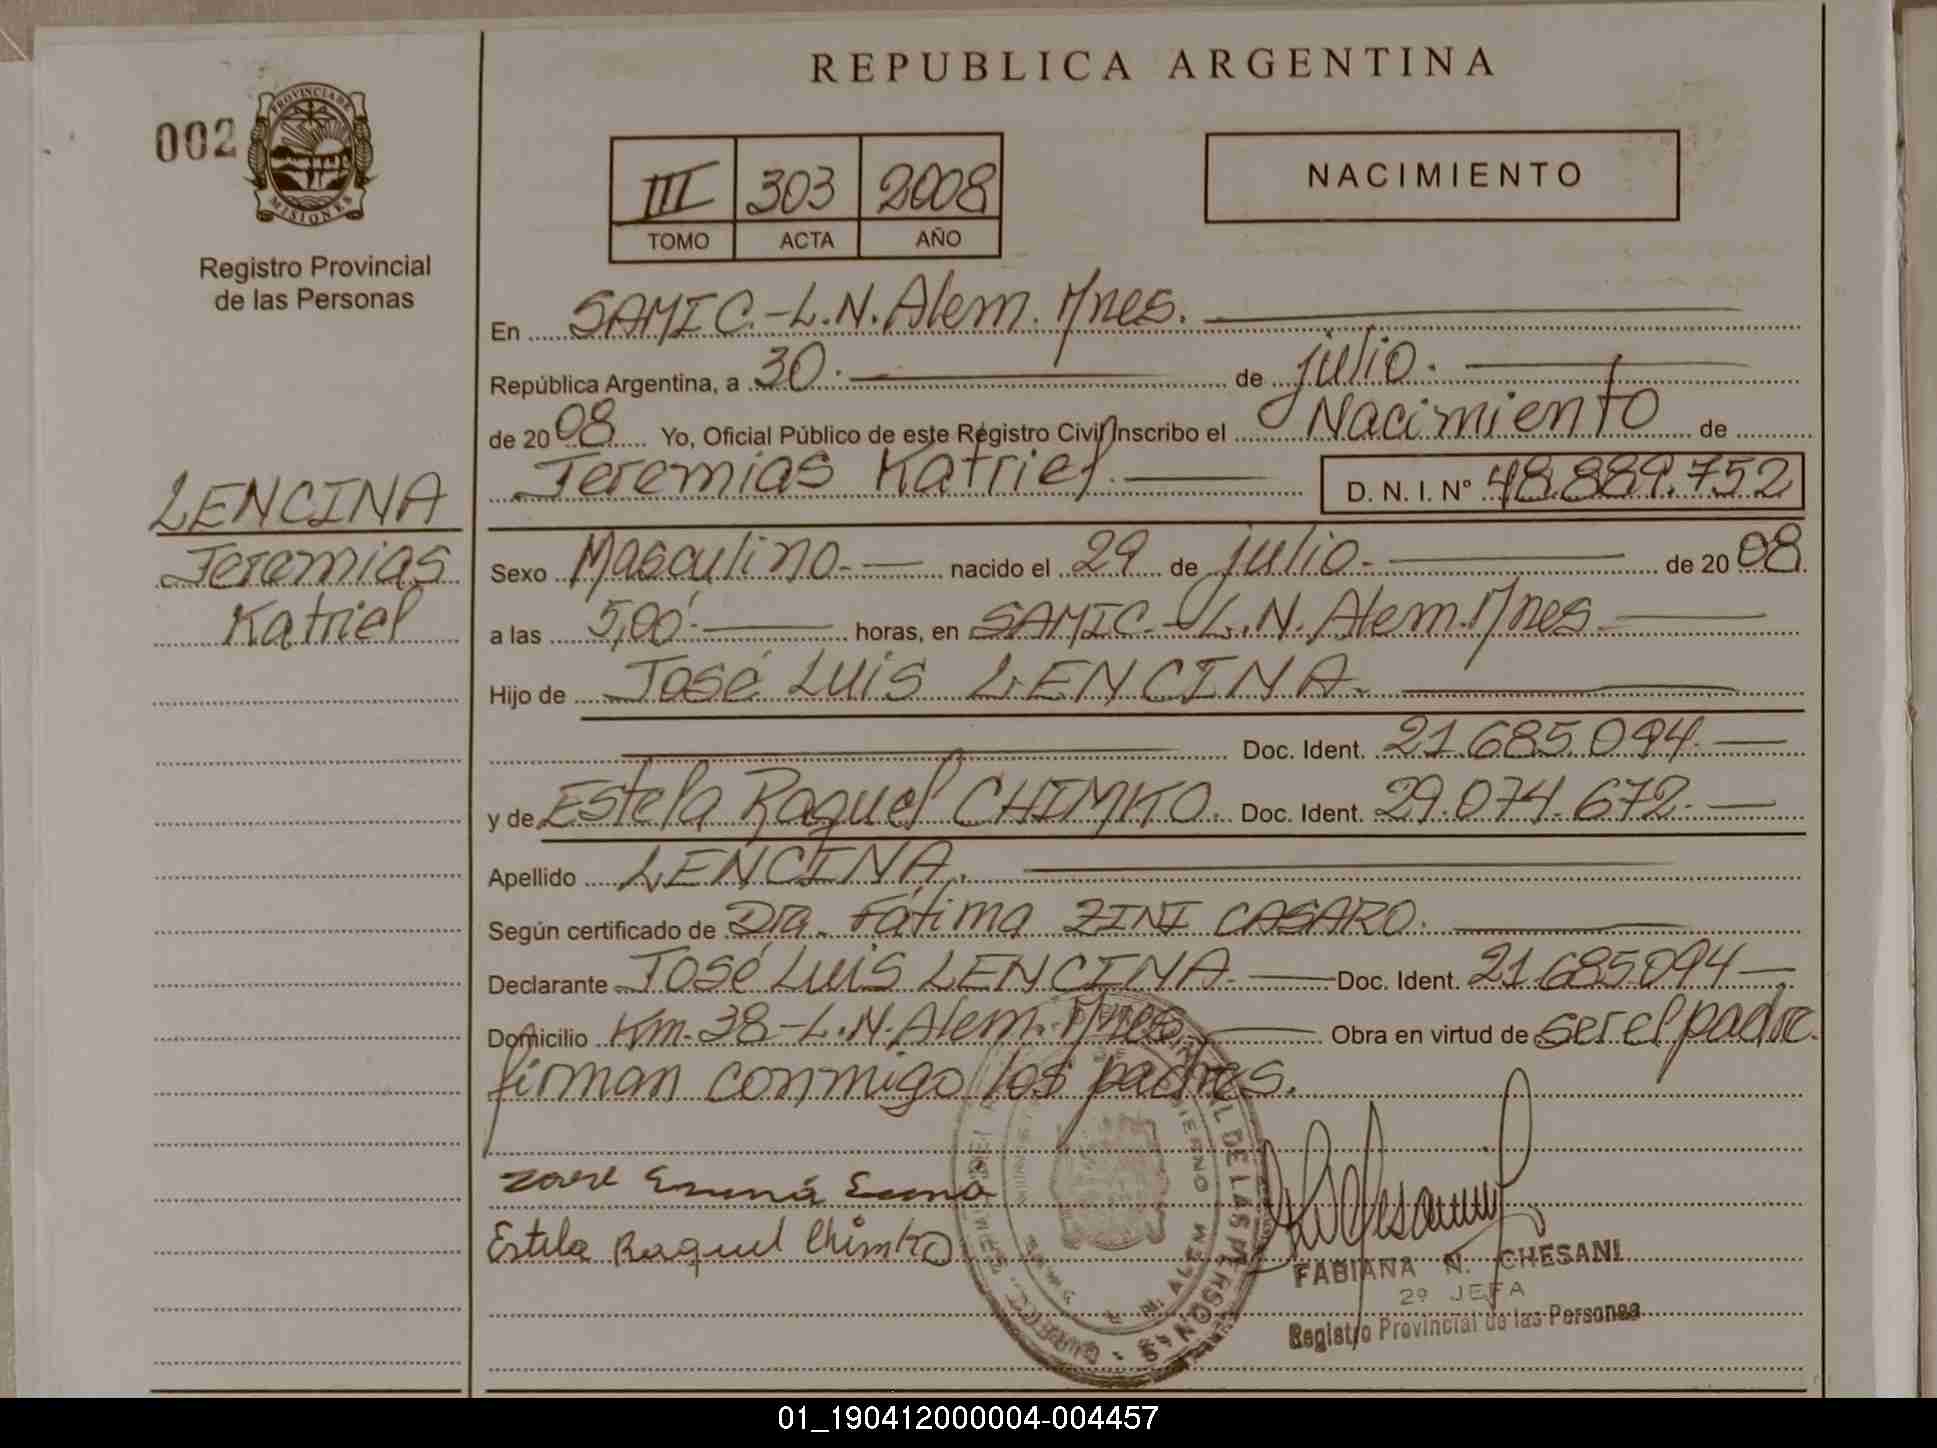 REPUBLICA ARGENTINA
002
PROVINCIA DE
MISIONES
Registro Provincial
de las Personas
III 303 2008
TOMO ACTA AÑO
NACIMIENTO
En SAMIC.-L.N.Alem.Mnes.
República Argentina, a 30. de julio.
de 2008 Yo, Oficial Público de este Registro Civil Inscribo el Nacimiento de
Jeremias Katriel. D. N. I. N° 48.889.752
LENCINA
Jeremias
Katriel
Sexo Masculino.- nacido el 29 de julio.- de 2008.
a las 5,00.- horas, en SAMIC.-L.N.Alem.Mnes
Hijo de José Luis LENCINA.
Doc. Ident. 21.685.094.
y de Estela Raquel CHIMKO. Doc. Ident. 29.074.672.
Apellido LENCINA.
Según certificado de Dra. Fátima ZINI CASARO.
Declarante José Luis LENCINA. Doc. Ident. 21.685.094
Domicilio Km.38-L.N.Alem.Mnes. Obra en virtud de ser el padre.
firman conmigo los padres.
Estela Raquel Chimko
FABIANA N. CHESANI
2º JEFA
Registro Provincial de las Personas
DE LAS PERSONAS
ALEM
01_190412000004-004457